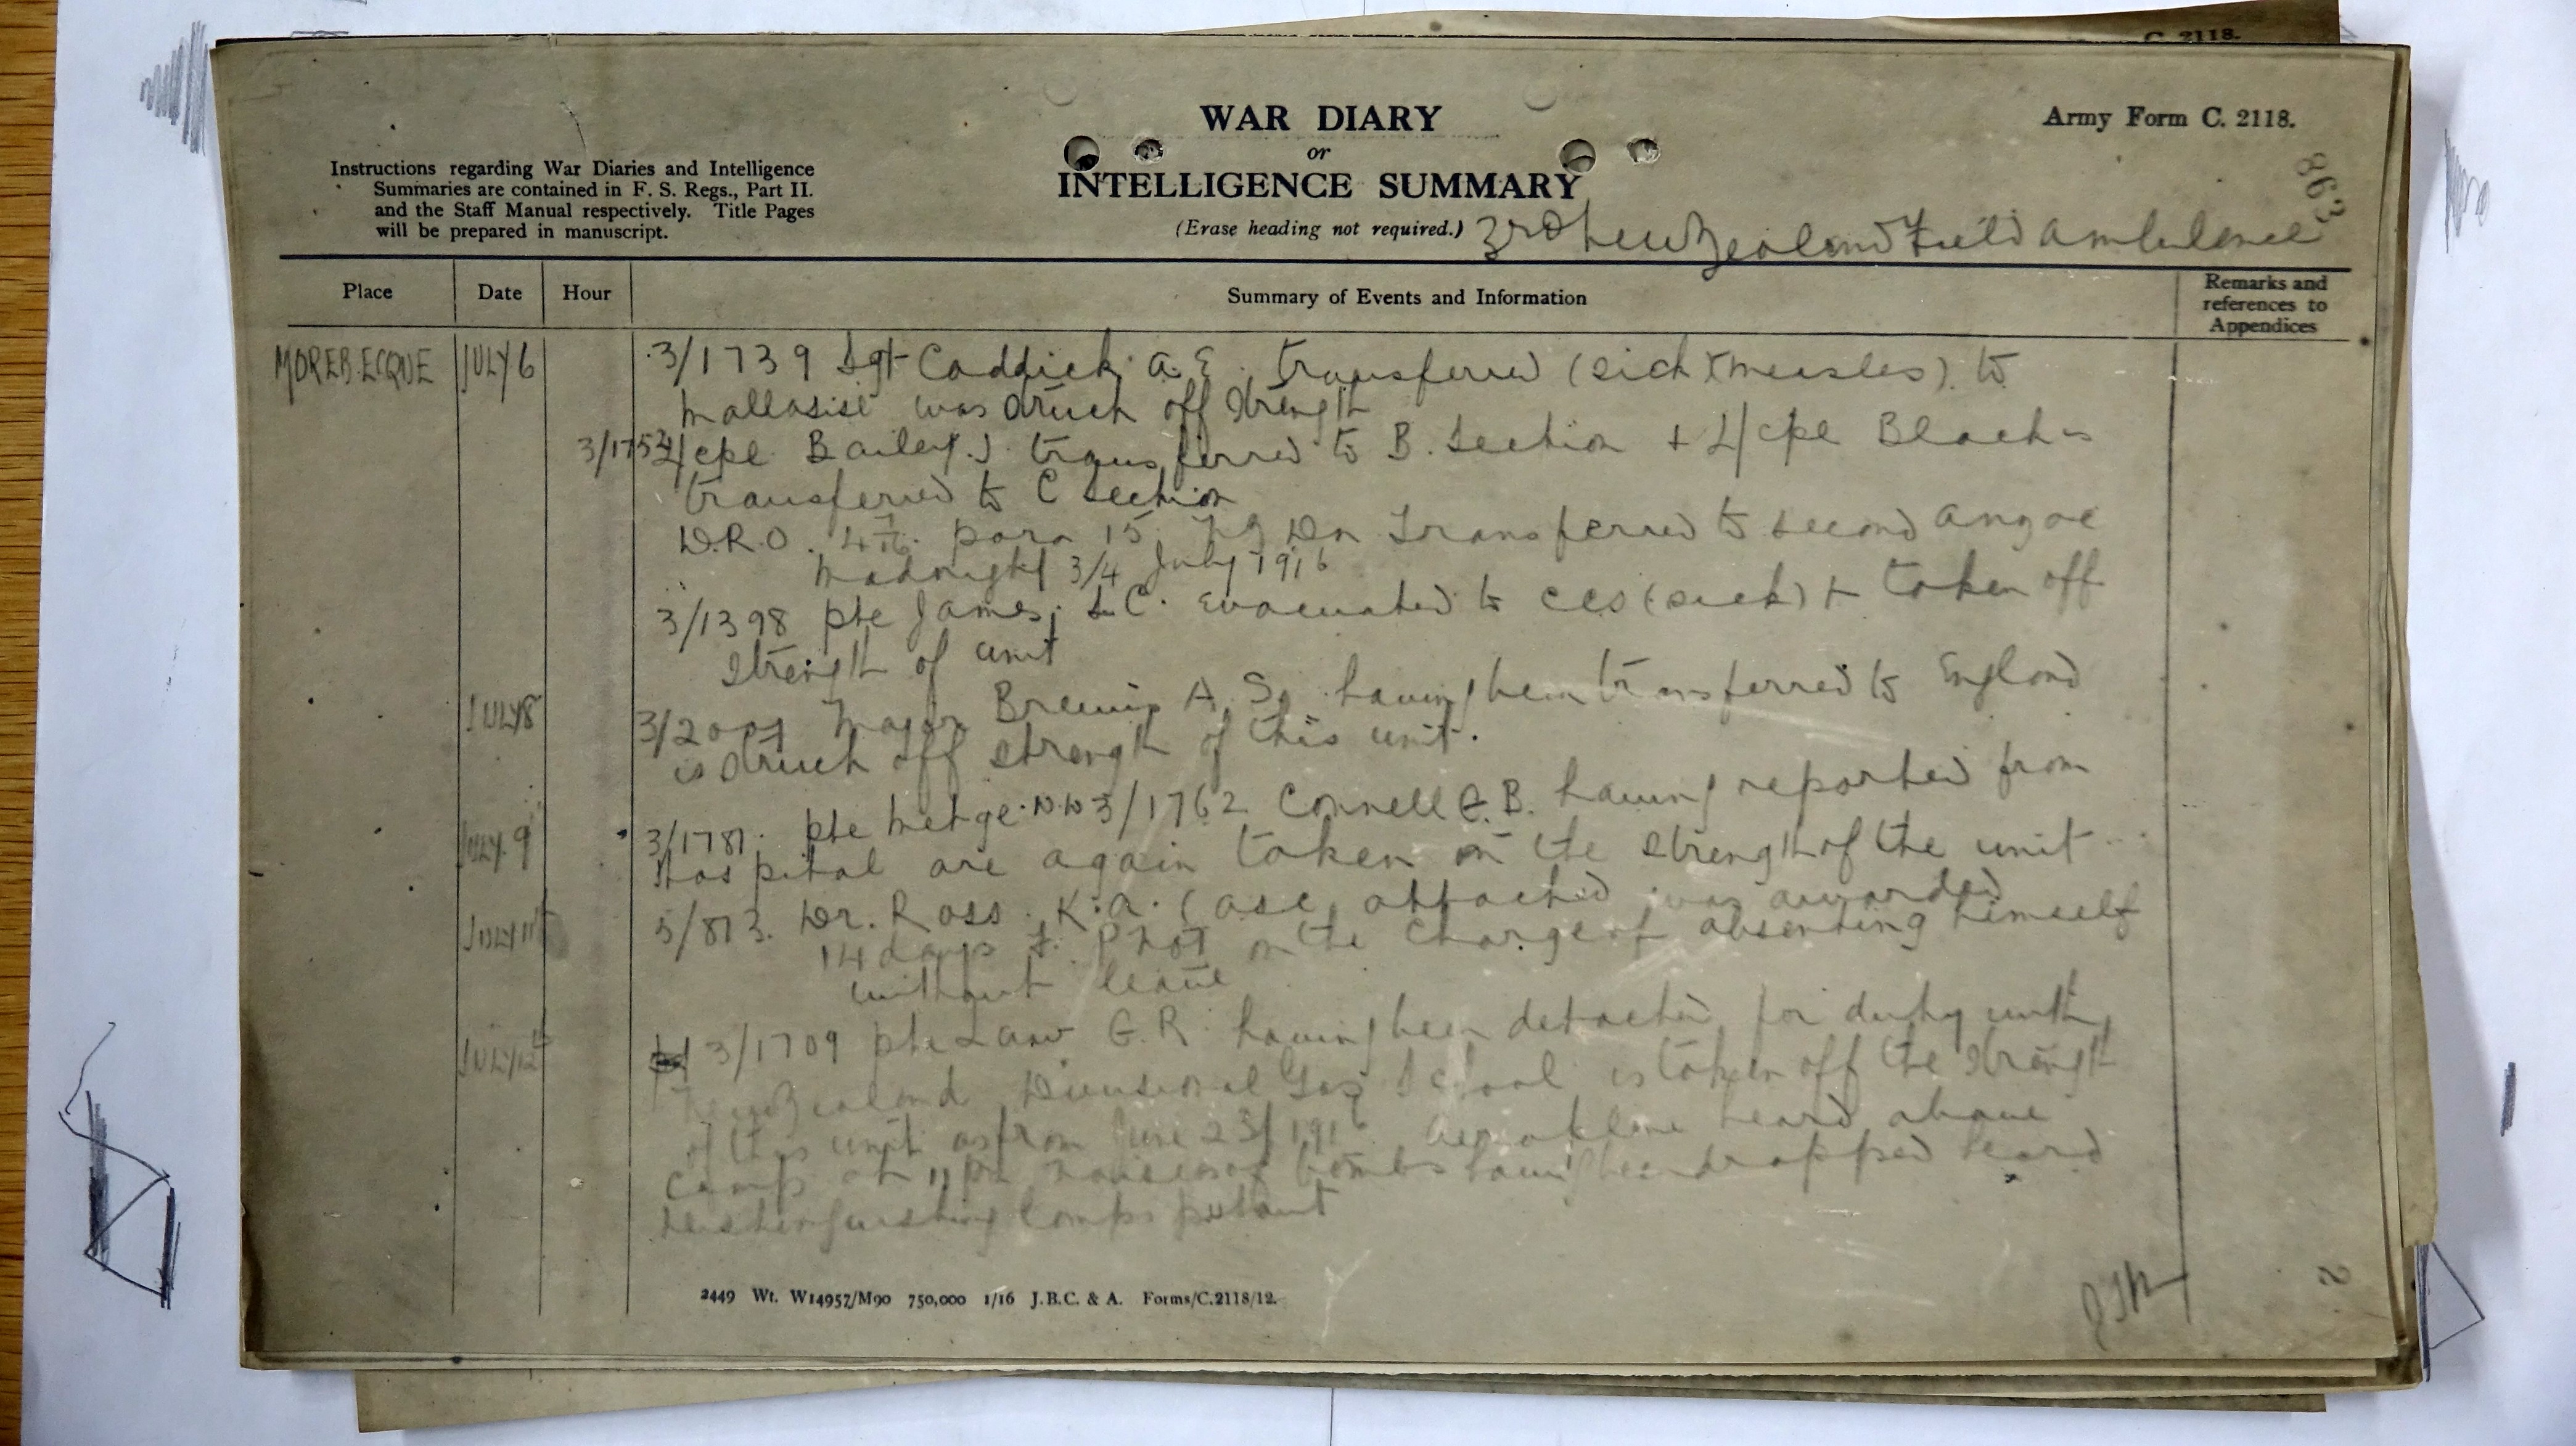 C. 2118.
WAR DIARY
or
INTELLIGENCE SUMMARY
(Erase heading not required.)
Army Form C. 2118.
863
Instructions regarding War Diaries and Intelligence
Summaries are contained in F. S. Regs., Part II.
and the Staff Manual respectively. Title Pages
will be prepared in manuscript.
3rd New Zealand Field Ambulence
Place Date Hour Summary of Events and Information Remarks and
references to
Appendices
MOREBECQUE JULY 6 3/1739 Sgt Caddick A.E. transferred (sick) (measles) to
was struck off strength
L/cpl Bailey. J. transferred to B. Section + L/cpl Black
transferred to C Section
D.R.O. para 15, NZ Dn Transferred to second
midnight 3/4 July 1916
3/1398 pte James, L.C. Evacuated to CCS (sick) + taken off
strength of unit
JULY 8 Major A.S. having been transferred to England
is struck off strength of this unit.
JULY 9 3/1781. pte 3/1762 Connell B. having reported from
Hospital are again taken on the strength of the unit
JULY 11 5/813. Dr. Ross. K.A. (ASC attached was awarded
14 days on the charge of absenting himself
without leave
JULY 12 3/1709 pte Law G.R. having been detached for duty with
New Zealand Divisional Gas School is taken off the strength
of this unit as from June 23/1916 Aeroplane heard above
camp at 11 pm noises of bombs having been dropped heard
distinguishing lamps put out
2449 Wt. W14957/M90 750,000 1/16 J.B.C. & A. Forms/C.2118/12.
2